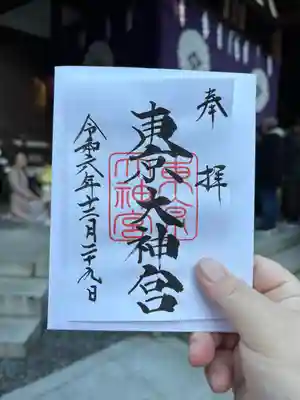 奉拝
東京大神宮
東京大神宮
令和六年十二月二十九日